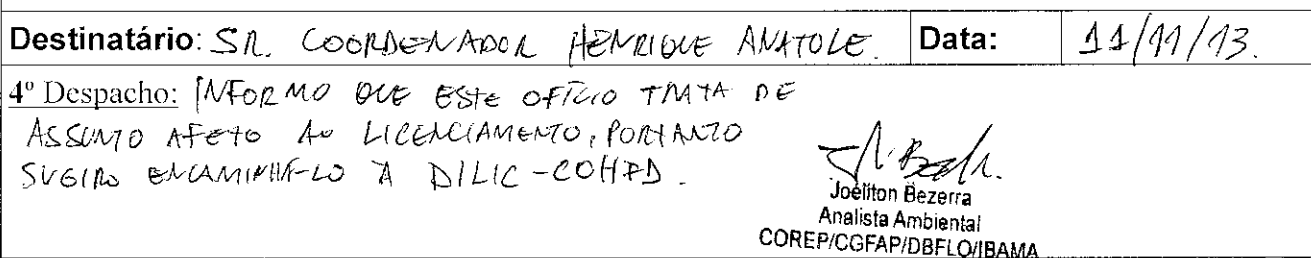 Destinatário: SR. COORDENADOR HENRIQUE ANATOLE. Data: 11/11/13.
4º Despacho: INFORMO QUE ESTE OFÍCIO TRATA DE
ASSUNTO AFETO AO LICENCIAMENTO, PORTANTO
SUGIRO ENCAMINHÁ-LO À DILIC-COHID.
Joéliton Bezerra
Analista Ambiental
COREP/CGFAP/DBFLO/IBAMA